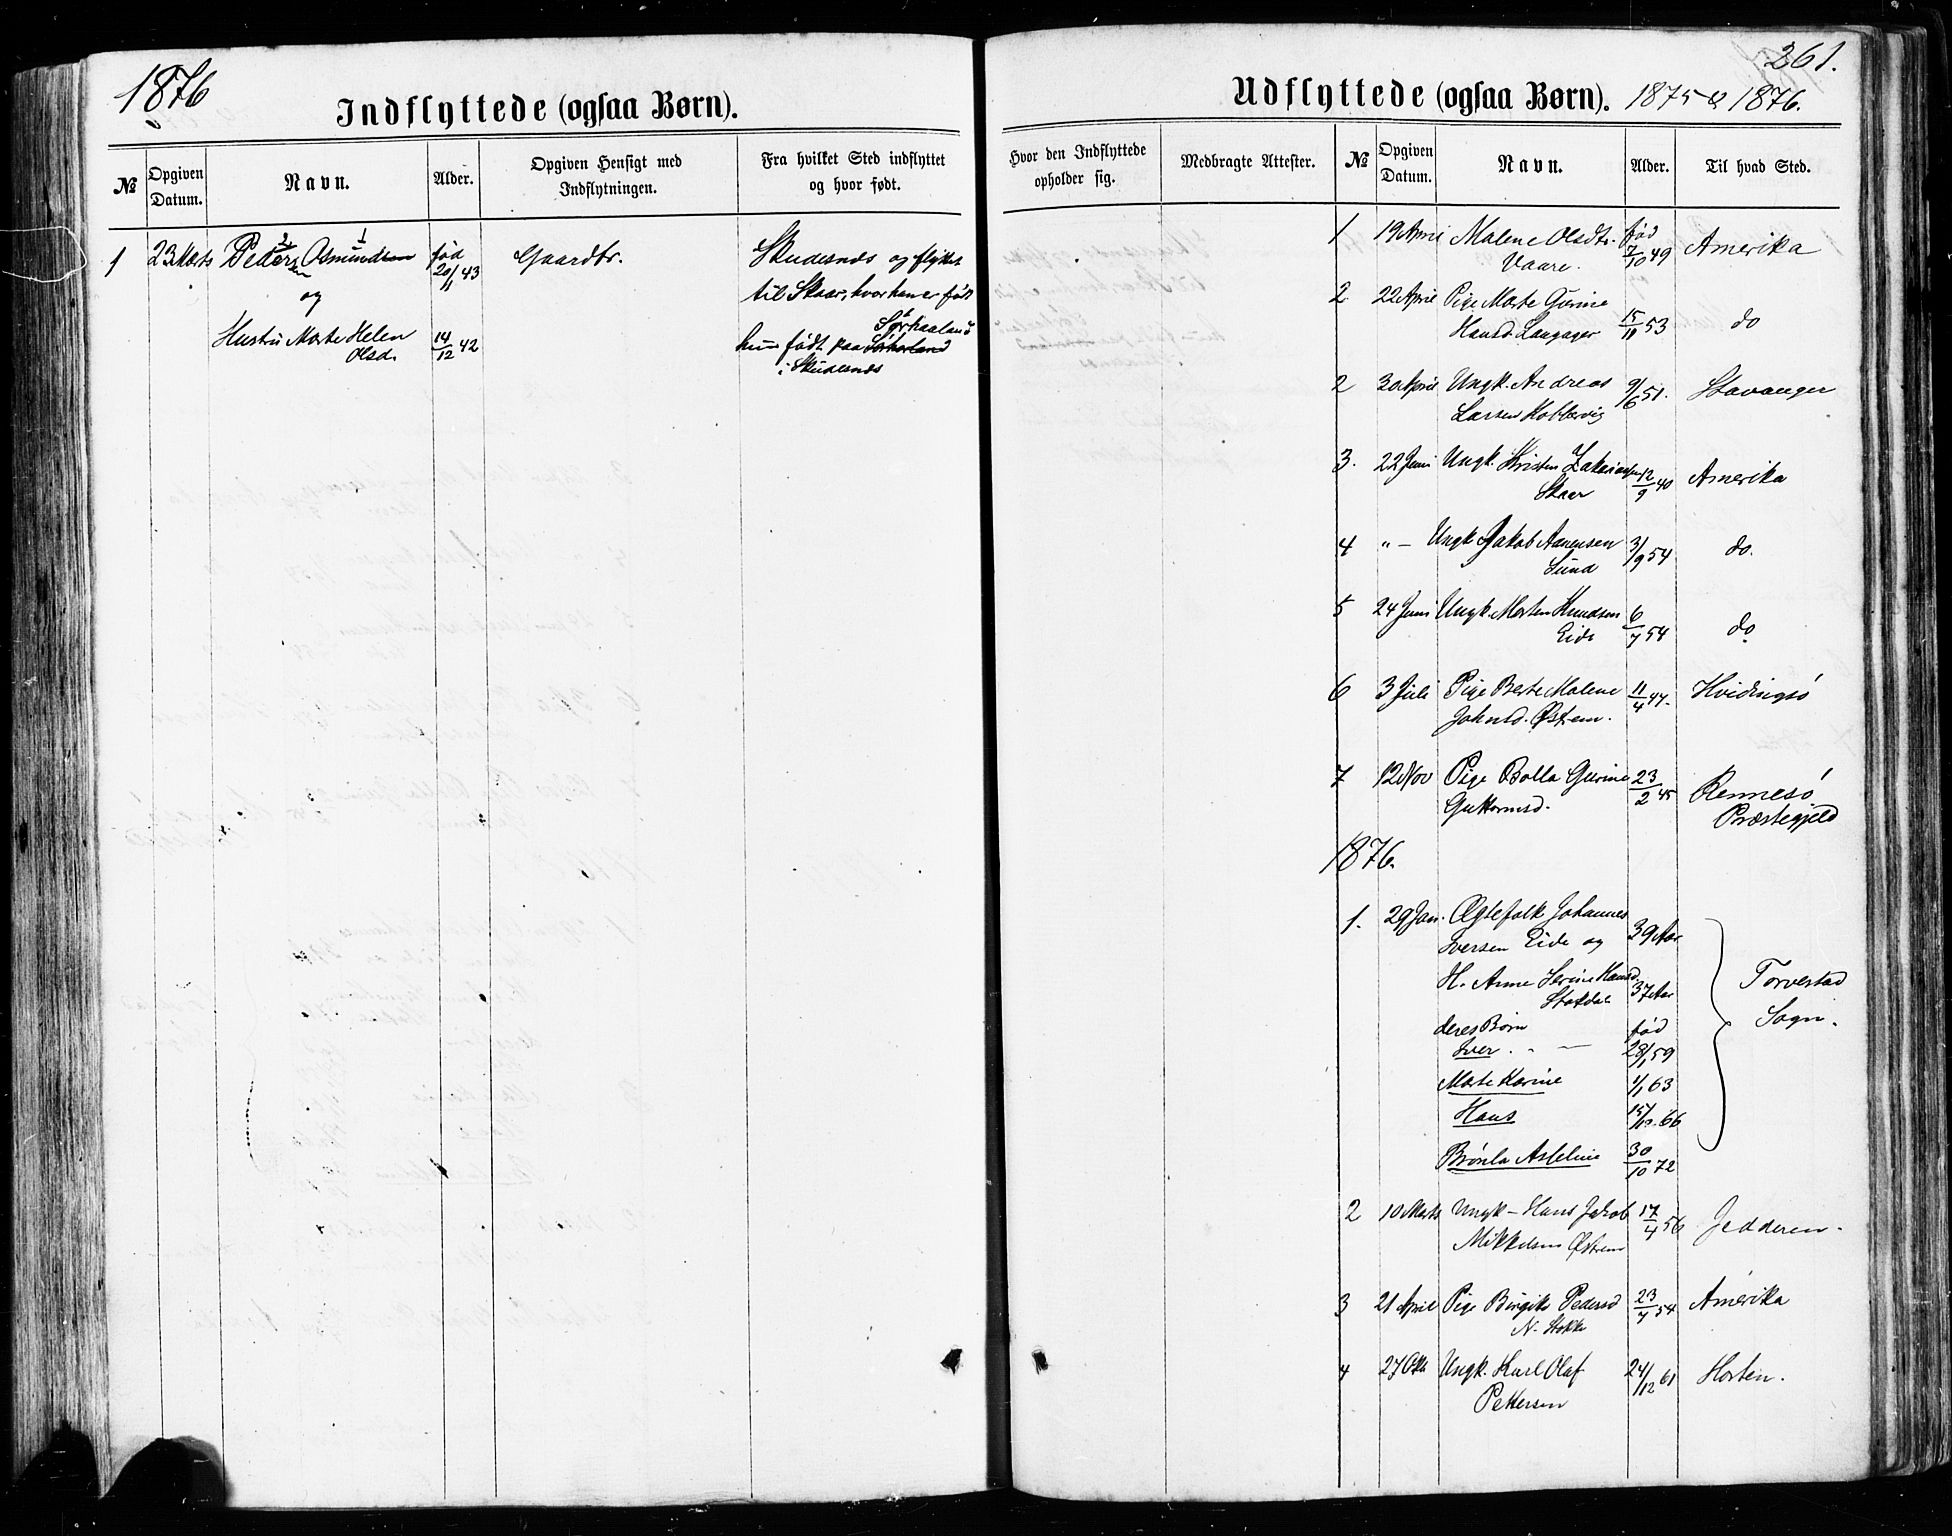 1876
Indflyttede (ogsaa Børn).
№
Opgiven Datum.
Navn.
Alder.
Opgiven Hensigt med Indflytningen.
Fra hvilket Sted indflyttet og hvor født.
1 23 Marts Petersen Osmund fød 20/11 43 Gaardbr. Skudesnæs og flyttet
og til Skaar, hvor han er født
Hustru Marte Helen 14/12 42 hun født paa Sørhaaland
Olsd. i Skudesnæs
261.
Udflyttede (ogsaa Børn). 1875 & 1876.
Hvor den Indflyttede opholder sig.
Medbragte Attester.
№
Opgiven Datum.
Navn.
Alder.
Til hvad Sted.
1 19 April Malene Olsdtr. fød 7/10 49 Amerika
Vaare.
2 22 April Pige Marte Gurine
Hansd. Langager 15/11 53 do
2 30 April Ungk. Andreas 9/6 51. Stavanger
Larsen Kobbervig
3. 22 Juni Ungk. Kristen Zakariasen 12/9 40 Amerika
Skaar
4 " — Ungk Jakob Aanensen 3/9 54 do.
Sund
5 24 Juni Ungk. Morten Knudsen 6/7 54 do
Eide
6 3 Juli Pige Berte Malene 11/4 47. Hvidingsö
Johnsd. Østrem.
7 12 Nov Pige Bolla Gurine 23/2 45 Rennesö
Guttormsd. Præstegjeld
1876.
1. 29 Jan. Ægtefolk Johannes
Iversen Eide og 39 Aar
H. Anne Serine Hansd. 37 Aar Torvestad
Stokdal Sogn.
deres Børn fød
Iver. " — 28/1 59
Marte Karine 1/1 63
Hans 15/10 66
Brönla Asseline 30/10 72
2 10 Marts Ungk — Hans Jakob 17/4 56 Jedderen.
Mikkelsen Østrem
3 21 April Pige Birgitte Pedersd 23/7 54 Amerika
N. Stokke
4 27 Okt Ungk. Karl Olaf 24/12 61 Horten.
Pettersen